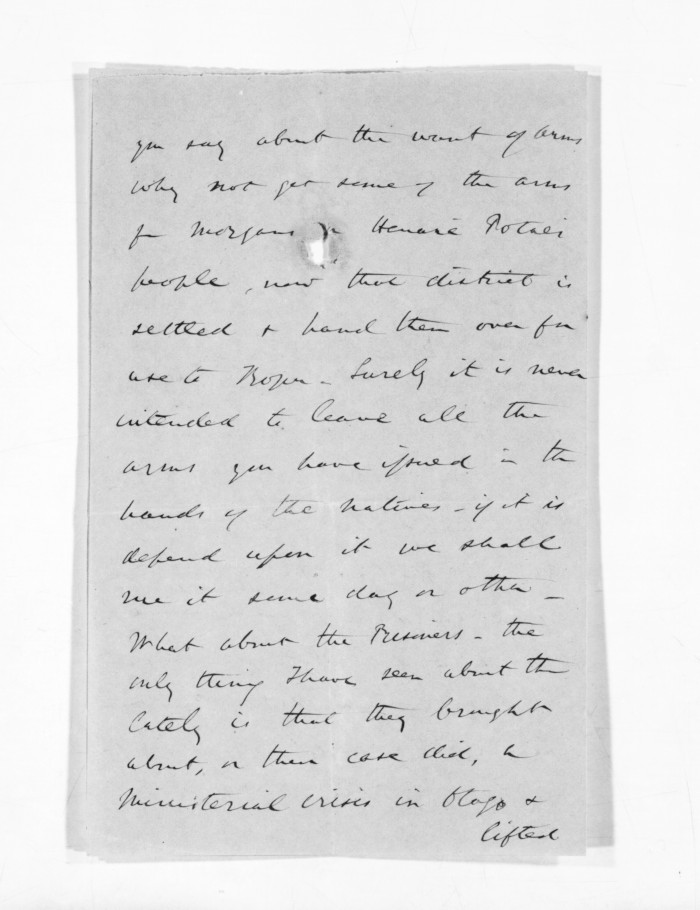 you say about the want of arms
why not get some of the arms
fr Morgans or Henare Potaes
people, now that district is
settled & hand them over for
use to Ropu - Surely it is never
intended to leave all the
arms you have issued in the
hands of the natives - if it is
depend upon it we shall
rue it some day or other -
What about the Prisoners - the
only thing I have seen about them
lately is that they brought
about, or their case did, a
Ministerial crisis in Otago &
lifted